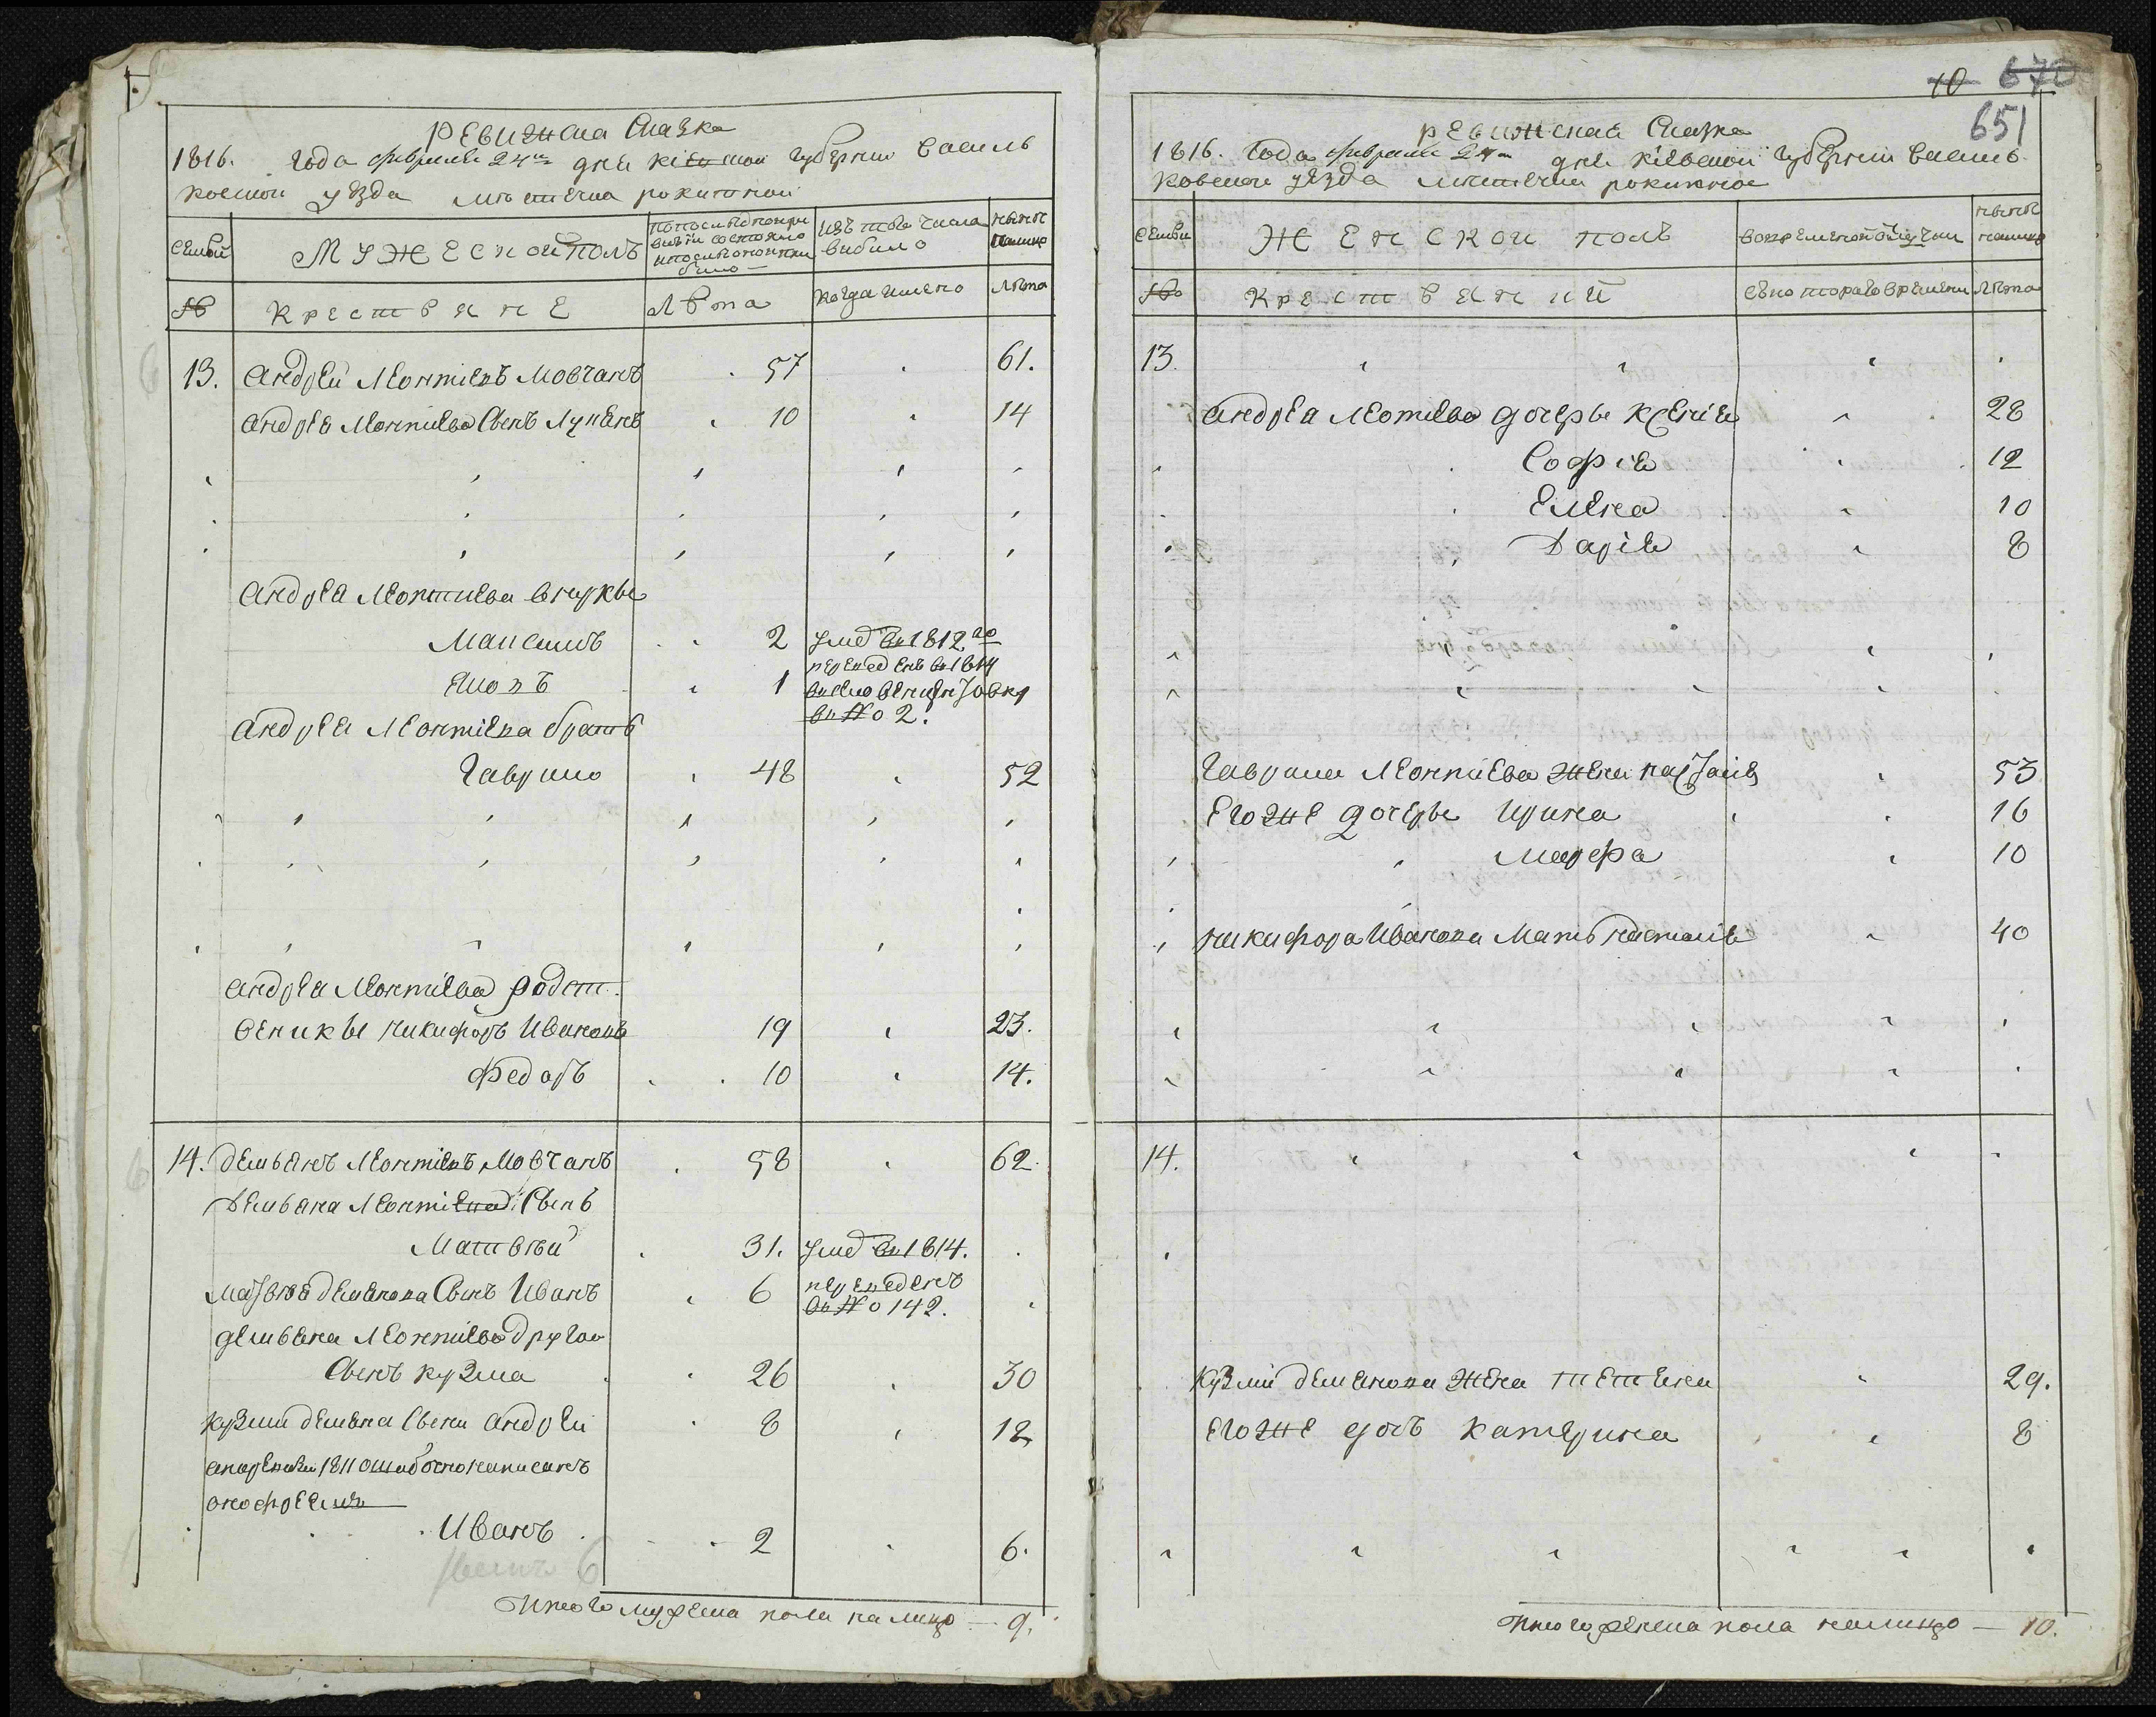 РЕВИЖСКА Сказка
1816. года февраля 24го дня Кіевской губернии Василь
ковской уезда местечка рокитной
семьи
МУЖЕСКОЙ ПОЛЪ
изъ того числа выбило
ныне налицо
№
КРЕСТЬЯНЕ
Лета
когда имено
лета
13. Андрей Леонтиевъ Мовчанъ 57 61.
Андрея Леонтиева Сынъ Лукянъ 10 14
Андрея Леонтиева внуки
Максимъ 2 умер в 1812го
1 переведенъ в 1814
в № 2.
Андрея Леонтиева братъ
Гаврило 48 52
Андрея Леонтиева родст
веники никифоръ Ивановъ 19 23.
Федоръ 10 14.
14. Демьянъ Леонтиевъ Мовчанъ 58 62.
Демьяна Леонтиева Сынъ
Матвей 31. умер в 1814.
Матвея Демянова Сынъ Иванъ 6 переведенъ
в № 142.
Демьяна Леонтиева другой
Сынъ Кузма 26 30
Кузми Демяна Сыни Андрей 8 12
1811 ошибочно написанъ
Иванъ 2 6.
Итого мужеска пола налицо — 9.
10 670
651
РЕВИЖСКАЯ Сказка
1816. Года февраля 24го дня Кіевской губернии Василь
ковской уезда местечки рокитное
семьи
ЖЕНСКОЙ ПОЛЪ
вовременной отлучки
ныне налицо
№
КРЕСТЬЯНКЙ
съкоторого времени
лета
13.
Андрея Леонтиева дочеры Ксения 28
Софія 12
Елена 10
Дарія 8
Гаврила Леонтиева жена настасия 53
Егоже дочеры Ирина 16
Марфа 10
никифора Иванова Мать настасия 40
14.
Кузми Демянова жена тетяна 29.
Егоже дочъ Катерина 8
Итого женска пола налицо — 10.